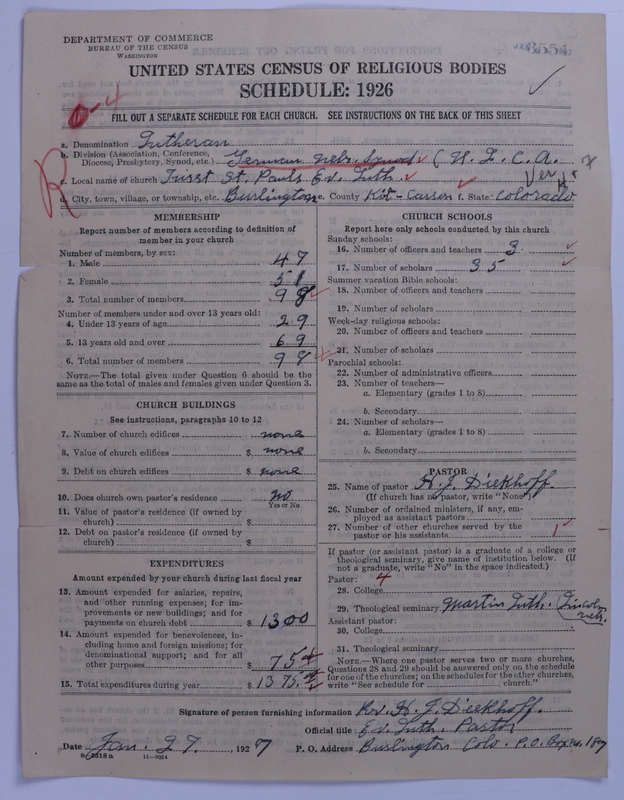 DEPARTMENT OF COMMERCE
BUREAU OF THE CENSUS
WASHINGTON
3554
UNITED STATES CENSUS OF RELIGIOUS BODIES
SCHEDULE: 1926
FILL OUT A SEPARATE SCHEDULE FOR EACH CHURCH. SEE INSTRUCTIONS ON THE BACK OF THIS SHEET
a. Denomination Lutheran
b. Division (Association, Conference, Diocese, Presbytery, Synod, etc.) German Nebr. Synod (U. L. C. A.
c. Local name of church First St. Pauls Ev. Luth.
d. City, town, village, or township, etc. Burlington e. County Kit-Carson f. State Colorado
MEMBERSHIP
Report number of members according to definition of member in your church
Number of members, by sex:
1. Male 47
2. Female 51
3. Total number of members 98
Number of members under and over 13 years old:
4. Under 13 years of age 29
5. 13 years old and over 69
6. Total number of members 98
NOTE.—The total given under Question 6 should be the same as the total of males and females given under Question 3.
CHURCH BUILDINGS
See instructions, paragraphs 10 to 12
7. Number of church edifices none
8. Value of church edifices $ none
9. Debt on church edifices $ none
10. Does church own pastor's residence no
Yes or No
11. Value of pastor's residence (if owned by church) $
12. Debt on pastor's residence (if owned by church) $
EXPENDITURES
Amount expended by your church during last fiscal year
13. Amount expended for salaries, repairs, and other running expenses; for improvements or new buildings; and for payments on church debt $ 1300
14. Amount expended for benevolences, including home and foreign missions; for denominational support; and for all other purposes $ 75
15. Total expenditures during year $ 1375
CHURCH SCHOOLS
Report here only schools conducted by this church
Sunday schools:
16. Number of officers and teachers 3
17. Number of scholars 35
Summer vacation Bible schools:
18. Number of officers and teachers
19. Number of scholars
Week-day religious schools:
20. Number of officers and teachers
21. Number of scholars
Parochial schools:
22. Number of administrative officers
23. Number of teachers—
a. Elementary (grades 1 to 8)
b. Secondary
24. Number of scholars—
a. Elementary (grades 1 to 8)
b. Secondary
PASTOR
25. Name of pastor H. J. Diekhoff
(If church has no pastor, write "None")
26. Number of ordained ministers, if any, employed as assistant pastors
27. Number of other churches served by the pastor or his assistants 1
If pastor (or assistant pastor) is a graduate of a college or theological seminary, give name of institution below. (If not a graduate, write "No" in the space indicated.)
Pastor: 4
28. College
29. Theological seminary Martin Luth. Lincoln Neb.
Assistant pastor:
30. College
31. Theological seminary
NOTE.—Where one pastor serves two or more churches, Questions 28 and 29 should be answered only on the schedule for one of the churches; on the schedules for the other churches, write "See schedule for church."
Signature of person furnishing information Rev. H. J. Diekhoff.
Official title Ev. Luth. Pastor
Date Jan. 27, 1927 P. O. Address Burlington Colo. P.O. Box
11—9054